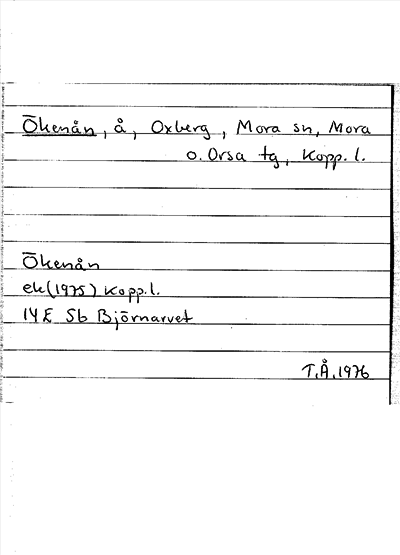 Ökenån, å, Oxberg, Mora sn, Mora
o. Orsa tg, Kopp. l.
Ökenån
ek (1975) Kopp. l.
14E 5b Björnarvet
T.Å. 1976